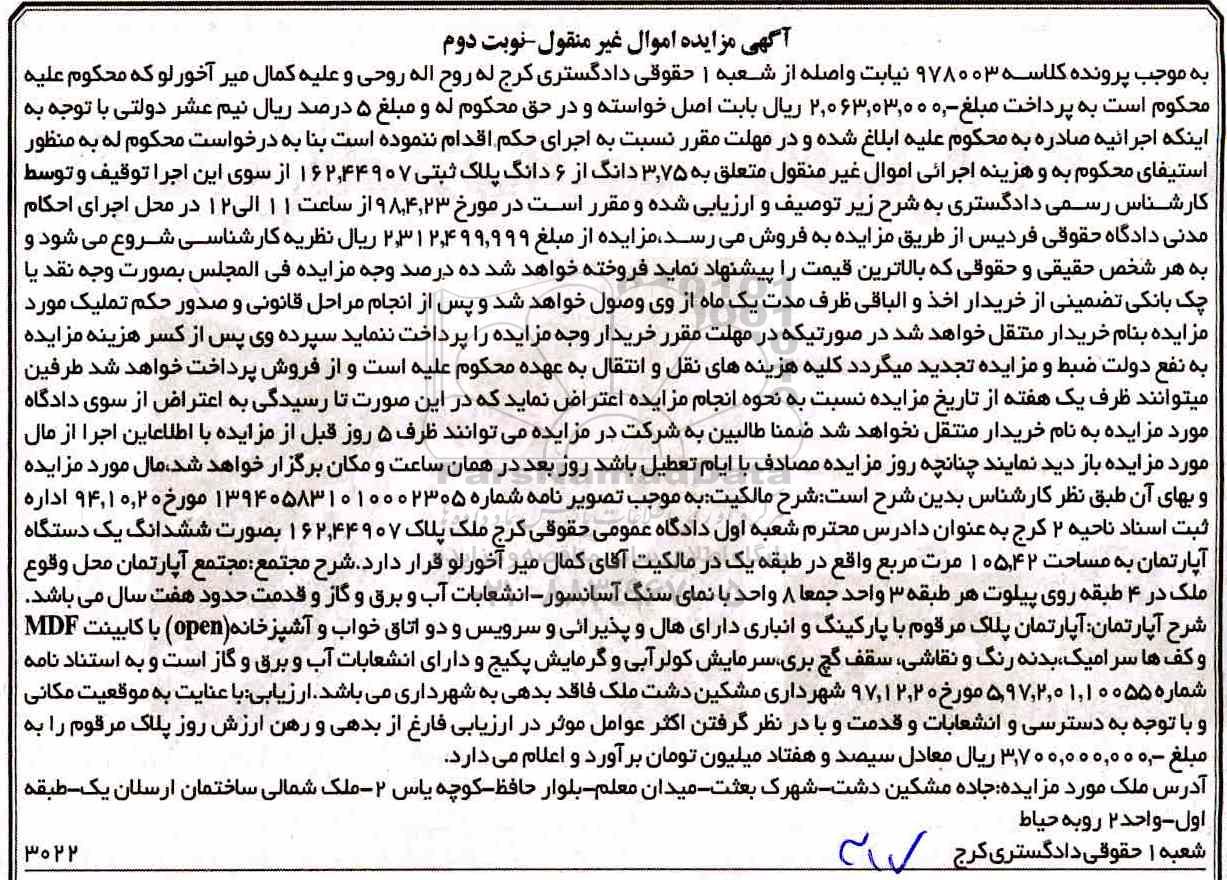 آگهی مزایده اموال غیر منقول-نوبت دوم
به موجب پرونده کلاسه ۹۷۸۰۰۳ نیابت واصله از شعبه ۱ حقوقی دادگستری کرج له روح اله روحی و علیه کمال میر آخورلو که محکوم علیه
محکوم است به پرداخت مبلغ-,۲,۰۶۳,۰۳,۰۰۰ ریال بابت اصل خواسته و در حق محکوم له و مبلغ ۵ درصد ریال نیم عشر دولتی با توجه به
اینکه اجرائیه صادره به محکوم علیه ابلاغ شده و در مهلت مقرر نسبت به اجرای حکم اقدام ننموده است بنا به درخواست محکوم له به منظور
استیفای محکوم به و هزینه اجرائی اموال غیر منقول متعلق به ۳,۷۵ دانگ از ۶ دانگ پلاک ثبتی ۱۶۲,۴۴۹۰۷ از سوی این اجرا توقیف و توسط
کارشناس رسمی دادگستری به شرح زیر توصیف و ارزیابی شده و مقرر است در مورخ ۹۸,۴,۲۳از ساعت ۱۱ الی۱۲ در محل اجرای احکام
مدنی دادگاه حقوقی فردیس از طریق مزایده به فروش می رسد،مزایده از مبلغ ۲,۳۱۲,۴۹۹,۹۹۹ ریال نظریه کارشناسی شروع می شود و
به هر شخص حقیقی و حقوقی که بالاترین قیمت را پیشنهاد نماید فروخته خواهد شد ده درصد وجه مزایده فی المجلس بصورت وجه نقد یا
چک بانکی تضمینی از خریدار اخذ و الباقی ظرف مدت یک ماه از وی وصول خواهد شد و پس از انجام مراحل قانونی و صدور حکم تملیک مورد
مزایده بنام خریدار منتقل خواهد شد در صورتیکه در مهلت مقرر خریدار وجه مزایده را پرداخت ننماید سپرده وی پس از کسر هزینه مزایده
به نفع دولت ضبط و مزایده تجدید میگردد کلیه هزینه های نقل و انتقال به عهده محکوم علیه است و از فروش پرداخت خواهد شد طرفین
میتوانند ظرف یک هفته از تاریخ مزایده نسبت به نحوه انجام مزایده اعتراض نماید که در این صورت تا رسیدگی به اعتراض از سوی دادگاه
مورد مزایده به نام خریدار منتقل نخواهد شد ضمنا طالبین به شرکت در مزایده می توانند ظرف ۵ روز قبل از مزایده با اطلاعاین اجرا از مال
مورد مزایده باز دید نمایند چنانچه روز مزایده مصادف با ایام تعطیل باشد روز بعد در همان ساعت و مکان برگزار خواهد شد،مال مورد مزایده
و بهای آن طبق نظر کارشناس بدین شرح است:شرح مالکیت:به موجب تصویر نامه شماره ۱۳۹۴۰۵۸۳۱۰۱۰۰۰۲۳۰۵ مورخ۹۴,۱۰,۲۰ اداره
ثبت اسناد ناحیه ۲ کرج به عنوان دادرس محترم شعبه اول دادگاه عمومی حقوقی کرج ملک پلاک ۱۶۲,۴۴۹۰۷ بصورت ششدانگ یک دستگاه
آپارتمان به مساحت ۱۰۵,۴۲ مرت مربع واقع در طبقه یک در مالکیت آقای کمال میر آخورلو قرار دارد.شرح مجتمع:مجتمع آپارتمان محل وقوع
ملک در ۴ طبقه روی پیلوت هر طبقه ۳ واحد جمعا ۸ واحد با نمای سنگ آسانسور-انشعابات آب و برق و گاز و قدمت حدود هفت سال می باشد.
شرح آپارتمان:آپارتمان پلاک مرقوم با پارکینگ و انباری دارای هال و پذیرائی و سرویس و دو اتاق خواب و آشپزخانه(open) با کابینت MDF
و کف ها سرامیک،بدنه رنگ و نقاشی، سقف گچ بری،سرمایش کولرآبی و گرمایش پکیج و دارای انشعابات آب و برق و گاز است و به استناد نامه
شماره ۵,۹۷,۲,۰۱,۱۰۰۵۵ مورخ۹۷,۱۲,۲۰ شهرداری مشکین دشت ملک فاقد بدهی به شهرداری می باشد.ارزیابی:با عنایت به موقعیت مکانی
و با توجه به دسترسی و انشعابات و قدمت و با در نظر گرفتن اکثر عوامل موثر در ارزیابی فارغ از بدهی و رهن ارزش روز پلاک مرقوم را به
مبلغ -,۳,۷۰۰,۰۰۰,۰۰۰ ریال معادل سیصد و هفتاد میلیون تومان برآورد و اعلام می دارد.
آدرس ملک مورد مزایده:جاده مشکین دشت-شهرک بعثت-میدان معلم-بلوار حافظ-کوچه یاس ۲-ملک شمالی ساختمان ارسلان یک-طبقه
اول-واحد۲ روبه حیاط
شعبه ۱ حقوقی دادگستری کرج
۳۰۲۲
ParsNamadData